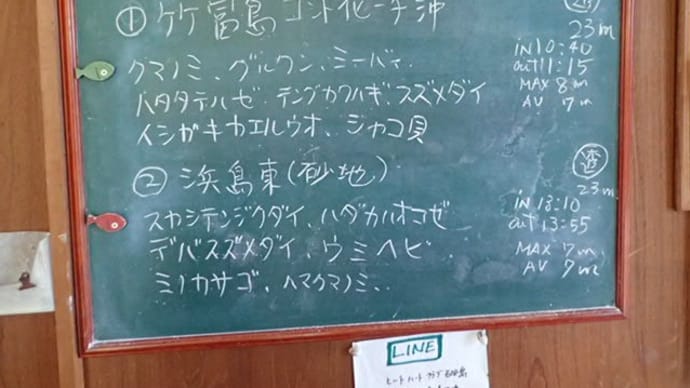 ① 竹富島 コンドイビーチ沖
クマノミ、グルクン、ミーバイ、
ハタタテハゼ、テングカワハギ、スズメダイ
イシガキカエルウオ、シャコ貝
透
23m
in 10:40
out 11:15
MAX 8m
AV 7m
② 浜島東(砂地)
スカシテンジクダイ、ハダカハオコゼ
デバスズメダイ、ウミヘビ、
ミノカサゴ、ハマクマノミ、
透
23m
in 13:10
out 13:55
MAX 7m
AV 7m
LINE
ヒートハートクラブ石垣島